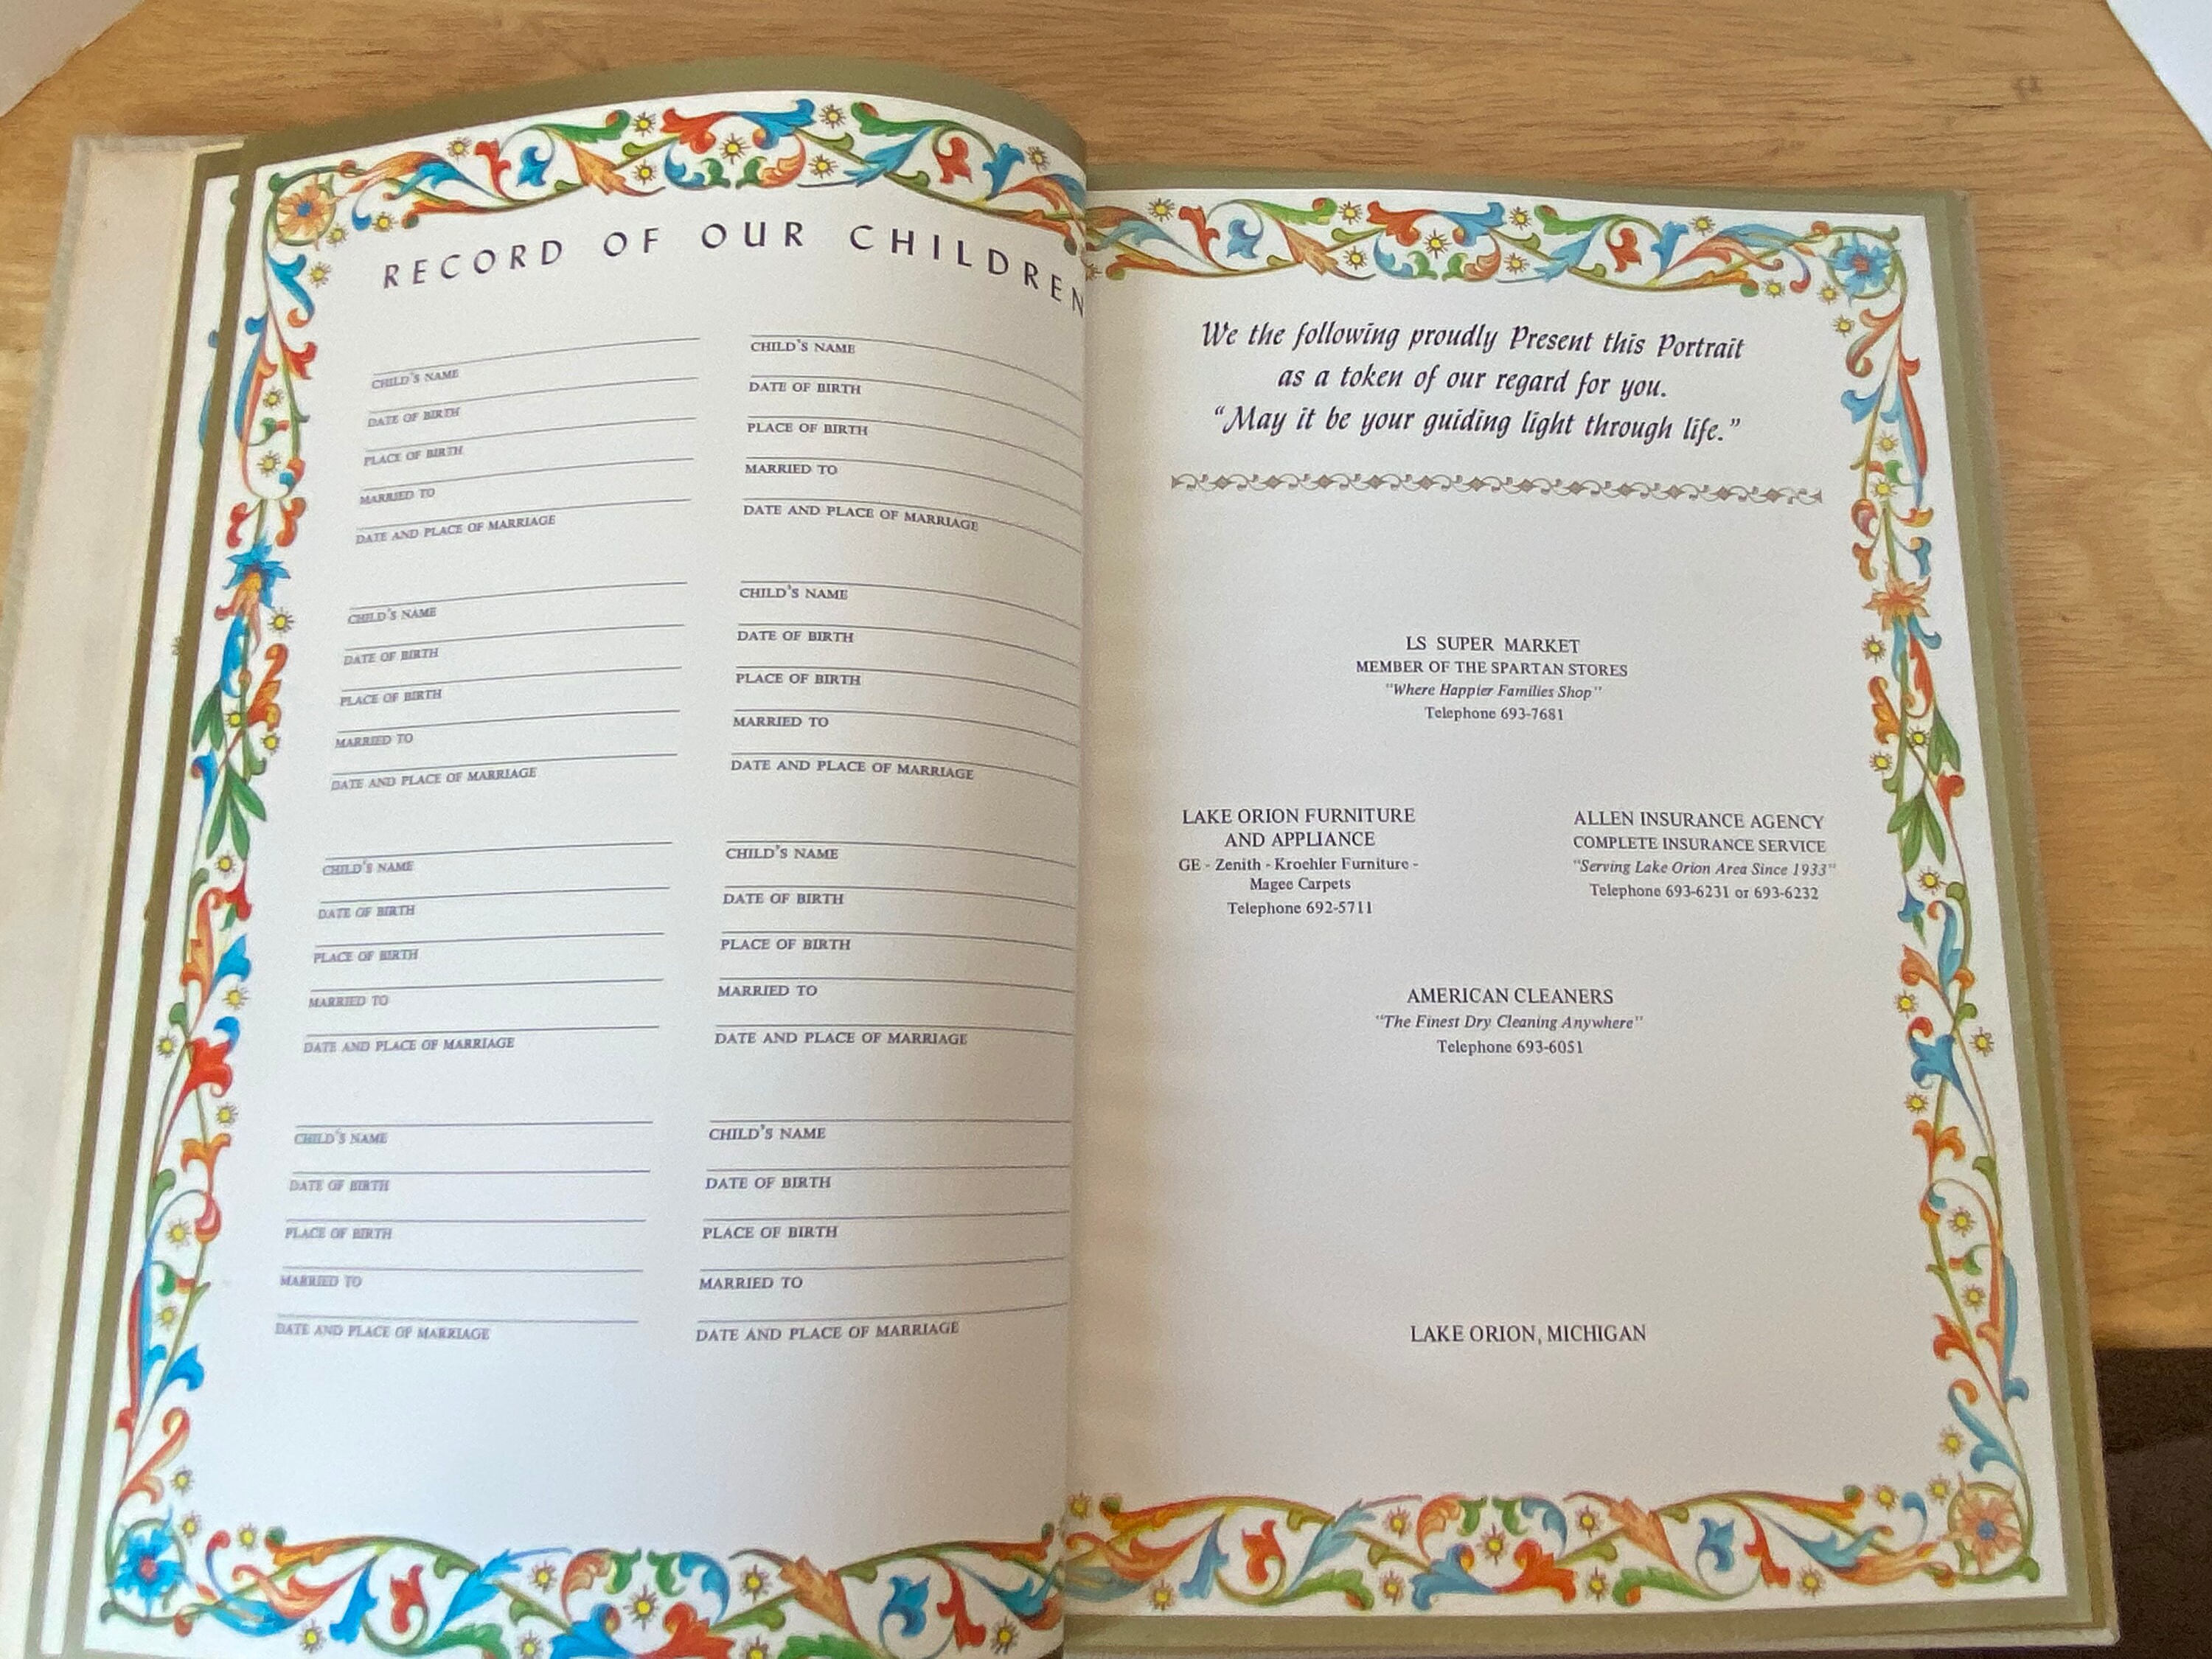 RECORD OF OUR CHILDREN
CHILD'S NAME
DATE OF BIRTH
PLACE OF BIRTH
MARRIED TO
DATE AND PLACE OF MARRIAGE
CHILD'S NAME
DATE OF BIRTH
PLACE OF BIRTH
MARRIED TO
DATE AND PLACE OF MARRIAGE
CHILD'S NAME
DATE OF BIRTH
PLACE OF BIRTH
MARRIED TO
DATE AND PLACE OF MARRIAGE
CHILD'S NAME
DATE OF BIRTH
PLACE OF BIRTH
MARRIED TO
DATE AND PLACE OF MARRIAGE
CHILD'S NAME
DATE OF BIRTH
PLACE OF BIRTH
MARRIED TO
DATE AND PLACE OF MARRIAGE
CHILD'S NAME
DATE OF BIRTH
PLACE OF BIRTH
MARRIED TO
DATE AND PLACE OF MARRIAGE
CHILD'S NAME
DATE OF BIRTH
PLACE OF BIRTH
MARRIED TO
DATE AND PLACE OF MARRIAGE
CHILD'S NAME
DATE OF BIRTH
PLACE OF BIRTH
MARRIED TO
DATE AND PLACE OF MARRIAGE
We the following proudly Present this Portrait
as a token of our regard for you.
“May it be your guiding light through life.”
LS SUPER MARKET
MEMBER OF THE SPARTAN STORES
"Where Happier Families Shop"
Telephone 693-7681
LAKE ORION FURNITURE
AND APPLIANCE
GE - Zenith - Kroehler Furniture -
Magee Carpets
Telephone 692-5711
ALLEN INSURANCE AGENCY
COMPLETE INSURANCE SERVICE
"Serving Lake Orion Area Since 1933"
Telephone 693-6231 or 693-6232
AMERICAN CLEANERS
"The Finest Dry Cleaning Anywhere"
Telephone 693-6051
LAKE ORION, MICHIGAN